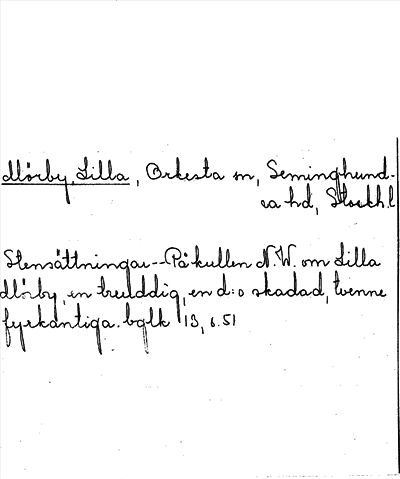 Mörby, Lilla, Orkesta sn, Seminghund-
ra hd, Stockh.l
Stensättningar--På kullen N.W. om Lilla
Mörby, en treuddig, en d:o skadad, tvenne
fyrkantiga. bglk 13, s. 51